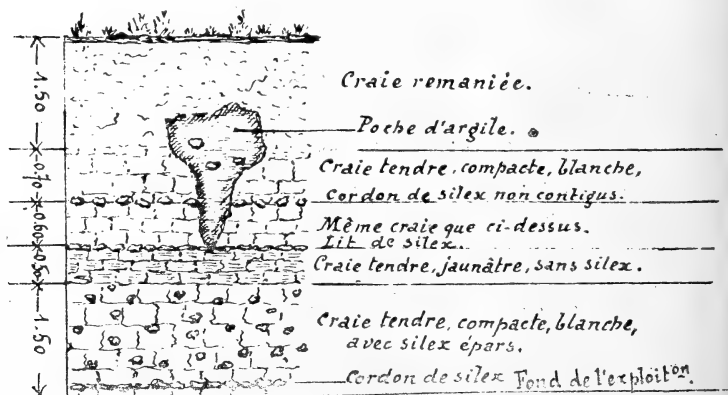 Craie remaniée.
Poche d'argile.
Craie tendre, compacte, blanche,
Cordon de silex non contigus.
Même craie que ci-dessus.
Lit de silex.
Craie tendre, jaunâtre, sans silex.
Craie tendre, compacte, blanche,
avec silex épars.
Cordon de silex Fond de l'exploit^on.
1.50
0.70
0.60
0.50
1.50